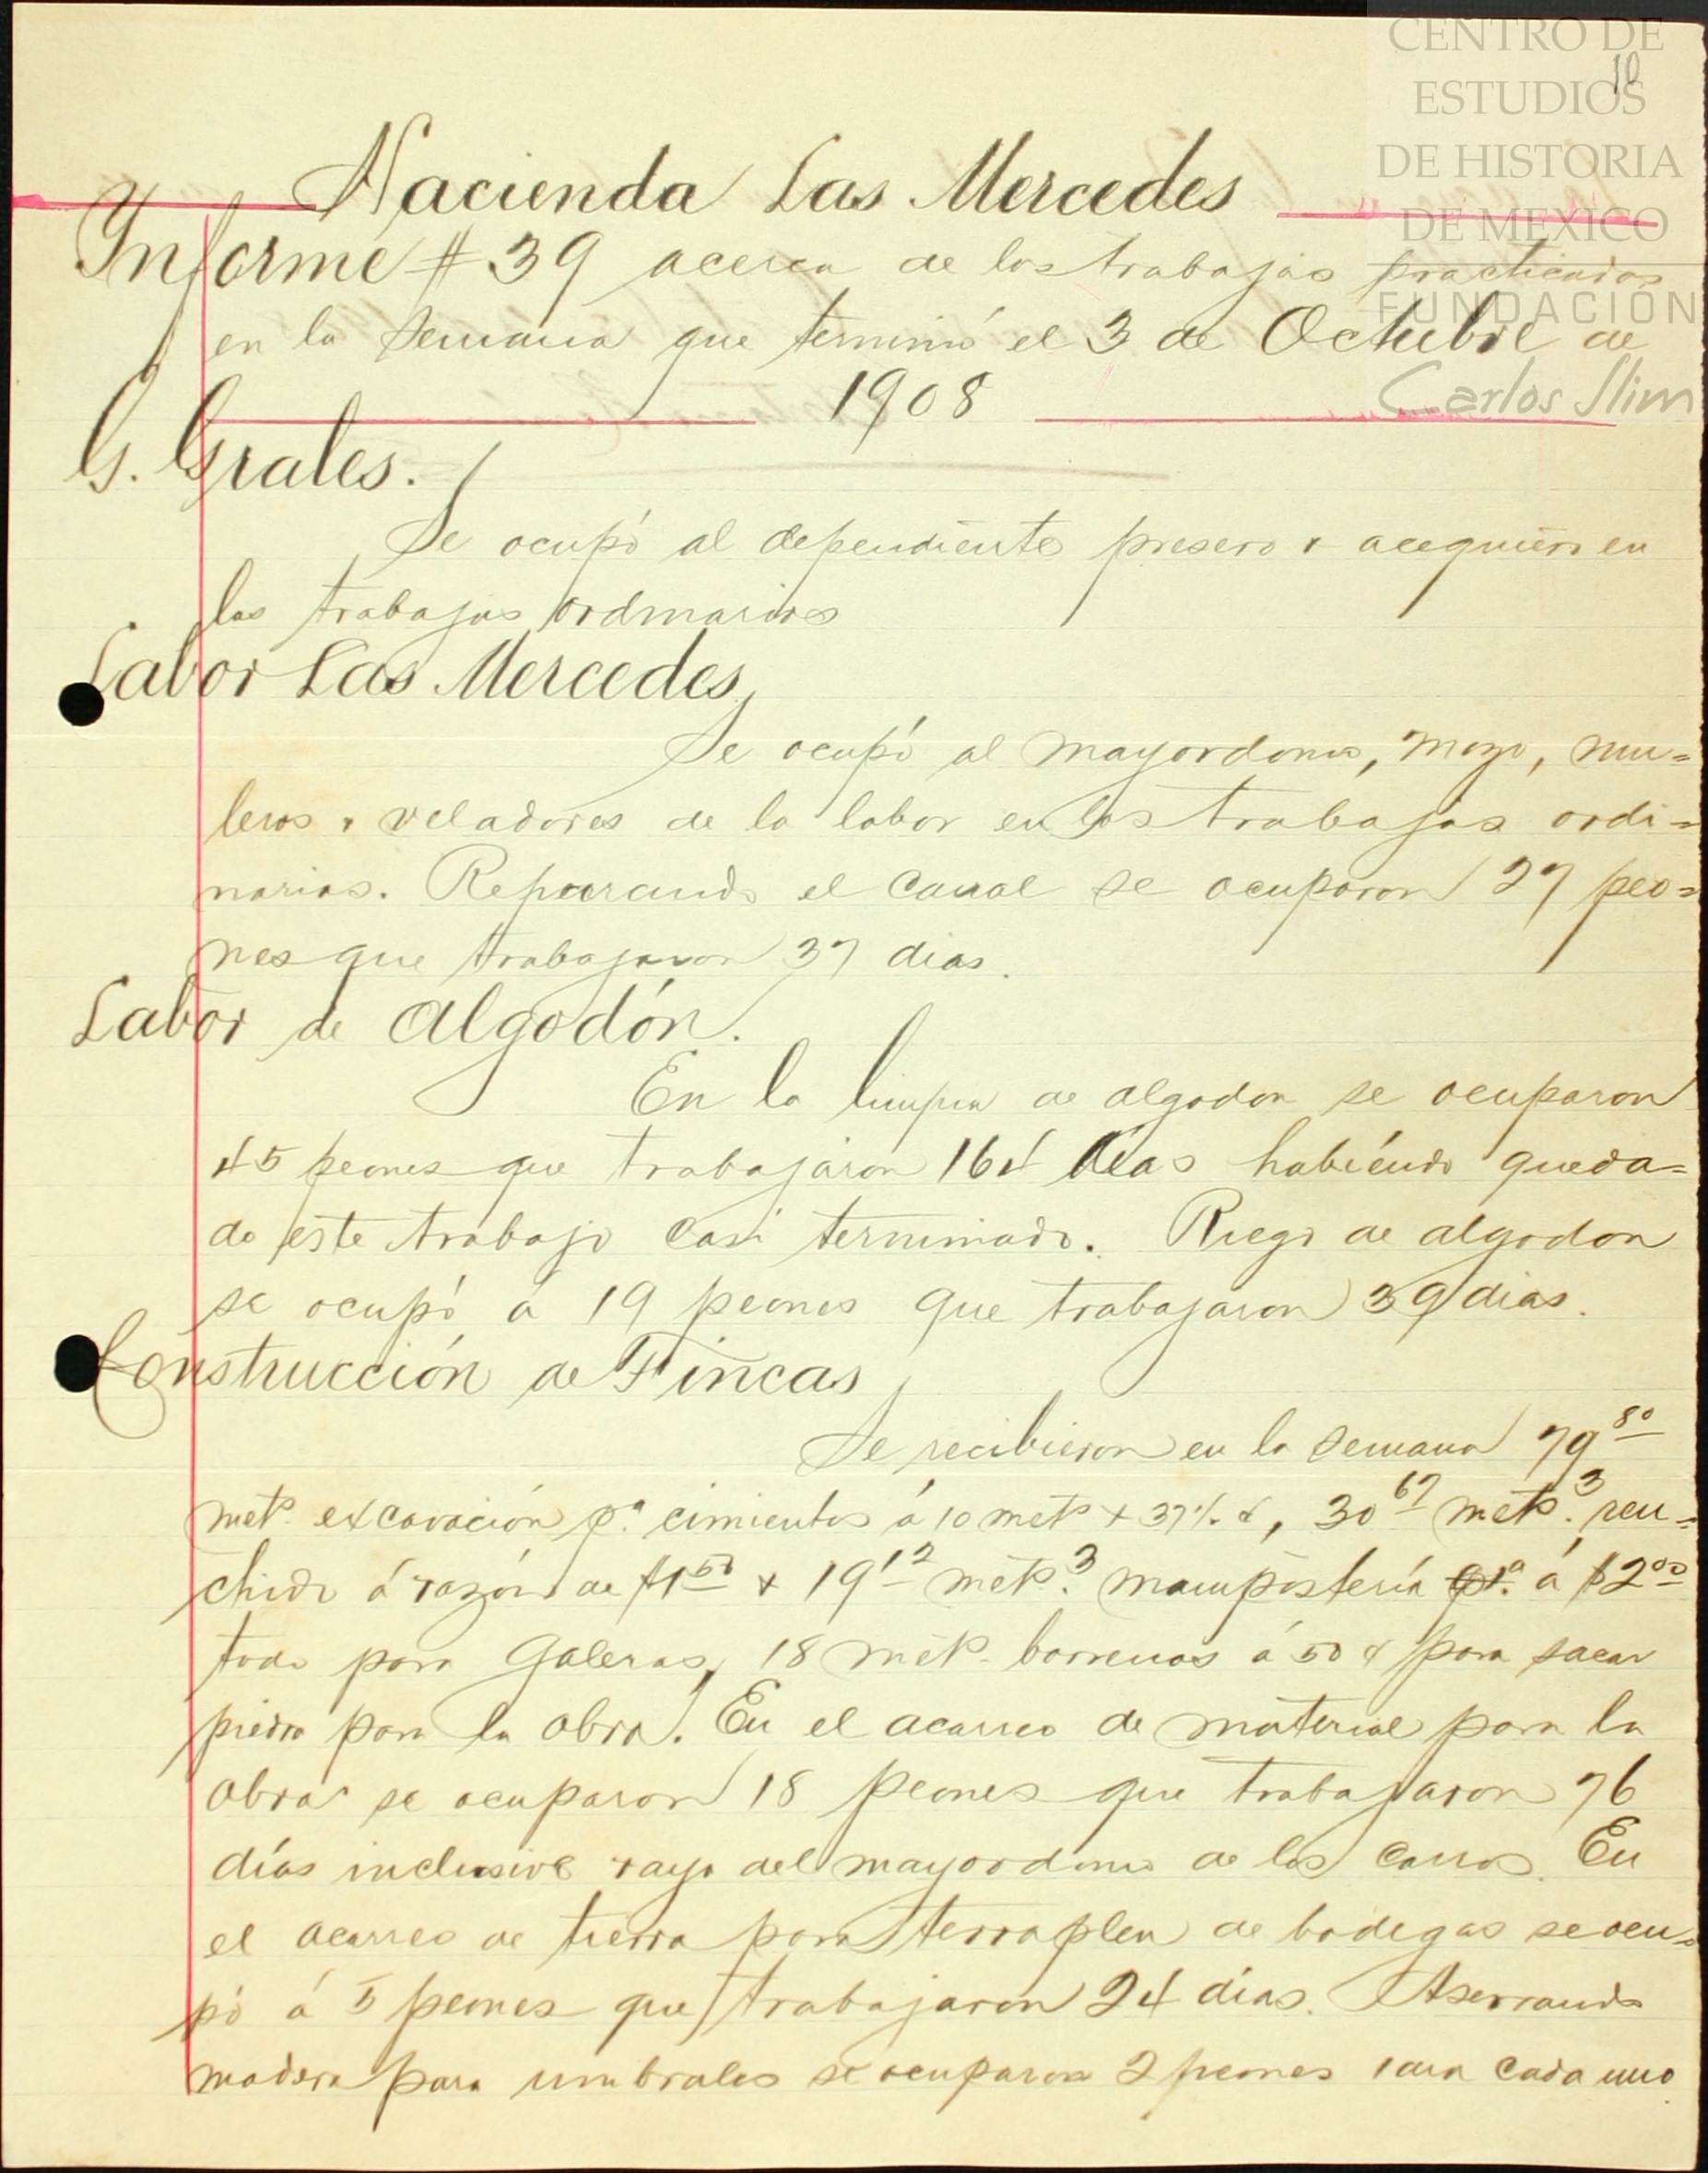 CENTRO DE
ESTUDIOS
DE HISTORIA
DE MEXICO
FUNDACIÓN
Carlos Slim
10
Hacienda Las Mercedes
Informe # 39 acerca de los trabajos practicados
en la semana que terminó el 3 de Octubre de
1908
G. Grales.
Se ocupó al dependiente presero y acequiero en
los trabajos ordinarios
Labor Las Mercedes
Se ocupó al mayordomo, mozo, mu=
leros y veladores de la labor en los trabajos ordi=
narios. Reparando el canal se ocuparon 27 peo=
nes que trabajaron 37 dias.
Labor de Algodón.
En la limpia de algodon se ocuparon
45 peones que trabajaron 164 dias habiéndo queda=
do este trabajo casi terminado. Riego de algodon
se ocupó á 19 peones que trabajaron 39 dias.
Construcción de Fincas
Se recibieron en la semana 79 80
met. excavación pa. cimientos á 10 mets y 37½ ¢, 30 67 mets.3 ren=
chido á razón de $1 50 y 19 12 mets.3 mampostería á $2 00
todo para Galeras, 18 mets. barrenos á 50 ¢ para sacar
piedra para la obra. En el acarreo de material para la
obra se ocuparon 18 peones que trabajaron 76
días inclusive raya del mayordomo de los carros. En
el acarreo de tierra para terraplen de bodegas se ocu=
pó á 5 peones que trabajaron 24 días. Aserrando
madera para umbrales se ocuparon 2 peones cada uno